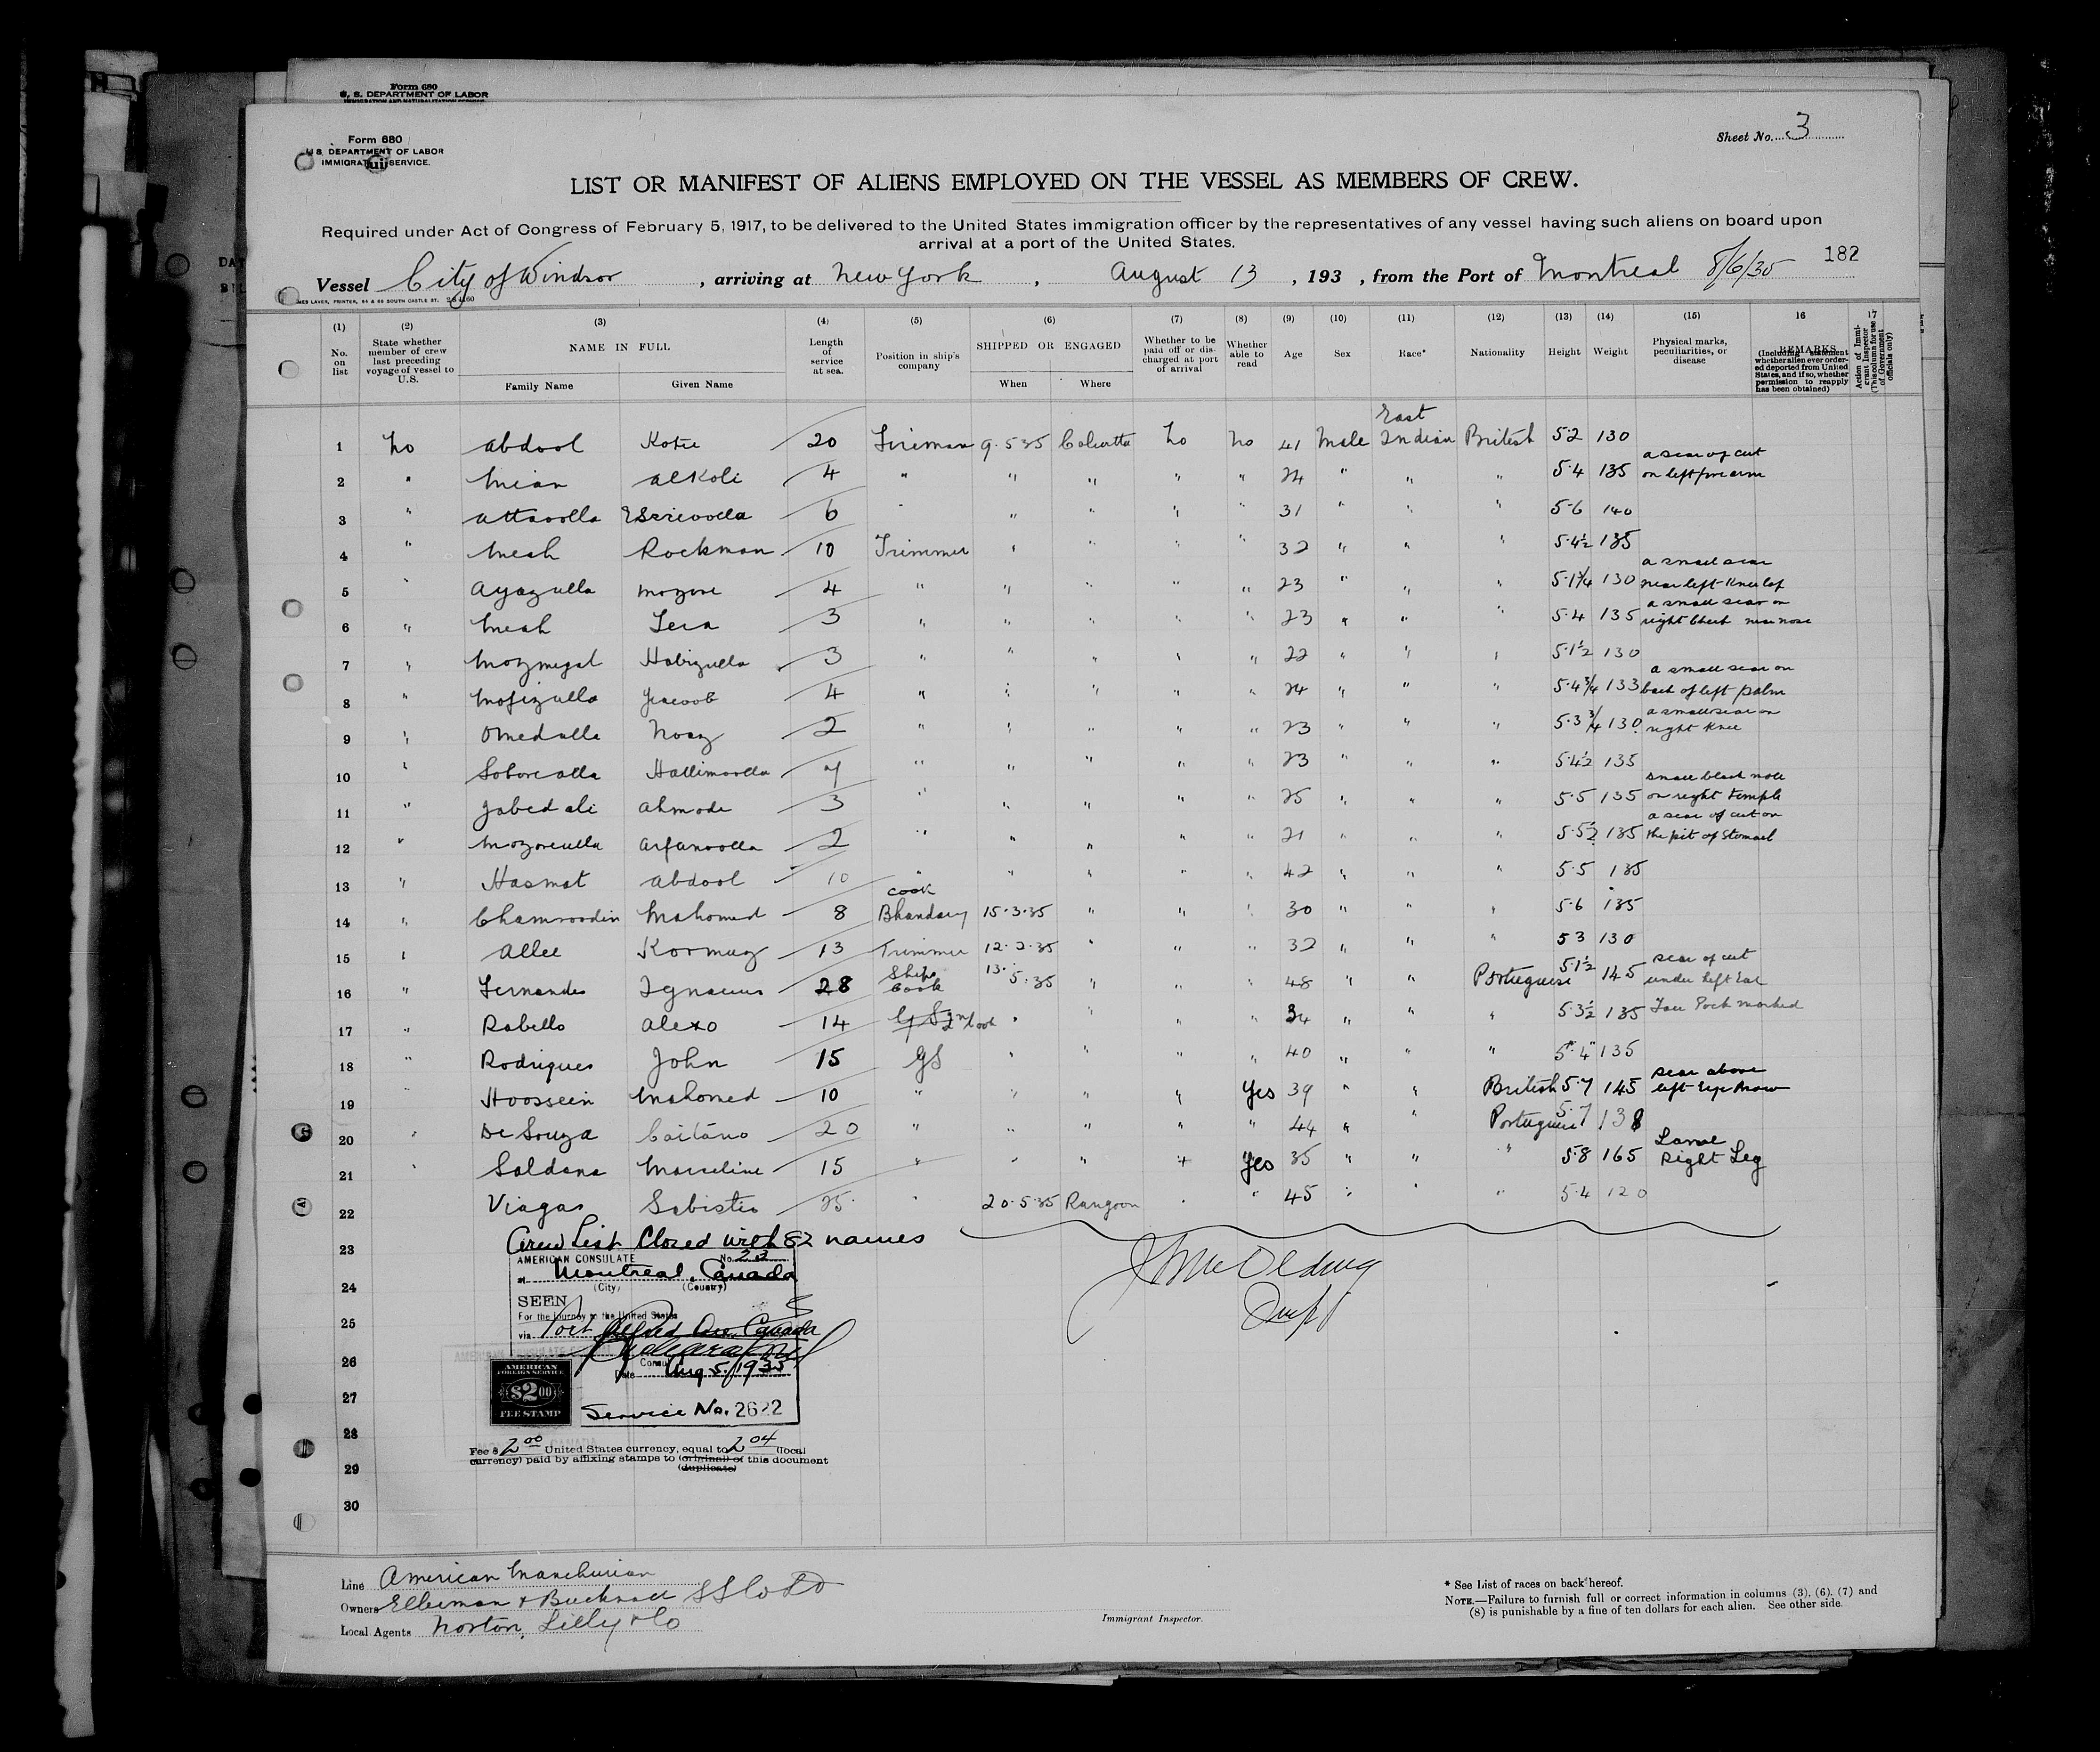 Form 680
U. S. DEPARTMENT OF LABOR
Form 680
U. S. DEPARTMENT OF LABOR
IMMIGRATION SERVICE.
Sheet No. 3
LIST OR MANIFEST OF ALIENS EMPLOYED ON THE VESSEL AS MEMBERS OF CREW.
Required under Act of Congress of February 5, 1917, to be delivered to the United States immigration officer by the representatives of any vessel having such aliens on board upon
arrival at a port of the United States.
182
Vessel City of Windsor , arriving at New York , August 13 , 193 , from the Port of Montreal 8/6/35
(1) (2) (3) (4) (5) (6) (7) (8) (9) (10) (11) (12) (13) (14) (15) 16 17
No. on list
State whether member of crew last preceding voyage of vessel to U.S.
NAME IN FULL
Family Name Given Name
Length of service at sea.
Position in ship's company
SHIPPED OR ENGAGED
When Where
Whether to be paid off or discharged at port of arrival
Whether able to read
Age
Sex
Race*
Nationality
Height
Weight
Physical marks, peculiarities, or disease
REMARKS
(Including statement whether alien ever ordered deported from United States, and if so, whether permission to reapply has been obtained)
Action of Immigrant Inspector (This column for use of Government officials only)
1 No Abdool Kotie 20 Fireman 9.5.35 Calcutta No No 41 Male East Indian British 5.2 130
2 " Meian Alkoli 4 " " " " " 24 " " " 5.4 135 a scar of cut on left fore arm
3 " Attavolla 6 " " " " " 31 " " " 5.6 140
4 " Meah Rockman 10 Trimmer " " " " 32 " " " 5.4½ 135
5 " Ayazulla Mozive 4 " " " " " 23 " " " 5.1¾ 130 a small scar near left knee cap
6 " Meah Lera 3 " " " " " 23 " " " 5.4 135 a small scar on right cheek near nose
7 " Mozmegal Habizulla 3 " " " " " 22 " " " 5.1½ 130
8 " Mofizulla Yacoob 4 " " " " " 24 " " " 5.4¾ 133 a small scar on back of left palm
9 " Omedulla Noaz 2 " " " " " 23 " " " 5.3¾ 130 a small scar on right knee
10 " Soborealla Hallimoolla " " " " " 23 " " " 5.4½ 135
11 " Jabed ali Ahmode 3 " " " " " 25 " " " 5.5 135 small black mole on right temple
12 " Mozoreulla Arfanoolla 2 " " " " " 21 " " " 5.5½ 135 a scar of cut on the pit of stomach
13 " Hasmat Abdool 10 " " " " " 42 " " " 5.5 135
14 " Chamroodin Mahomed 8 cook Bhandary 15.3.35 " " " 30 " " " 5.6 135
15 " Allee Kormuz 13 Trimmer 12.2.35 " " " 32 " " " 5 3 130
16 " Fernandes Ignacius 28 Ships Cook 13.5.35 " " " 48 " " Portuguese 5.1½ 145 scar of cut under left Ear
17 " Rabello Alexo 14 G S 2nd Cook " " " " 34 " " " 5.3½ 135 Face Pock marked
18 " Rodrigues John 15 GS " " " " 40 " " " 5.4 135
19 " Hoossein Mahomed 10 " " " " Yes 39 " " British 5.7 145 scar above left Eye brow
20 " De Souza Caitano 20 " " " " " 44 " " Portuguese 5.7 138
21 " Saldana Marceline 15 " " " " Yes 35 " " " 5.8 165 Lame Right Leg
22 Viagas Sabistio 25 " 20.5.35 Rangoon " " 45 " " " 5.4 120
23 Crew List Closed with 82 names
24
25
26
27
28
29
30
AMERICAN CONSULATE No. 22
at Montreal, Canada
(City) (Country)
SEEN
For the journey to the United States
via Port Alfred Que. Canada
Consul
Date Aug 5/1935
AMERICAN
FOREIGN SERVICE
$2.00
FEE STAMP
Service No. 2622
Fee $ 2.00 United States currency, equal to 2.04 (local
currency) paid by affixing stamps to (original) of this document
(duplicate)
Line American Manchurian
Owners Ellerman & Bucknall SS Co Ltd
Local Agents Norton, Lilly & Co
Immigrant Inspector.
* See List of races on back hereof.
NOTE.—Failure to furnish full or correct information in columns (3), (6), (7) and
(8) is punishable by a fine of ten dollars for each alien. See other side.